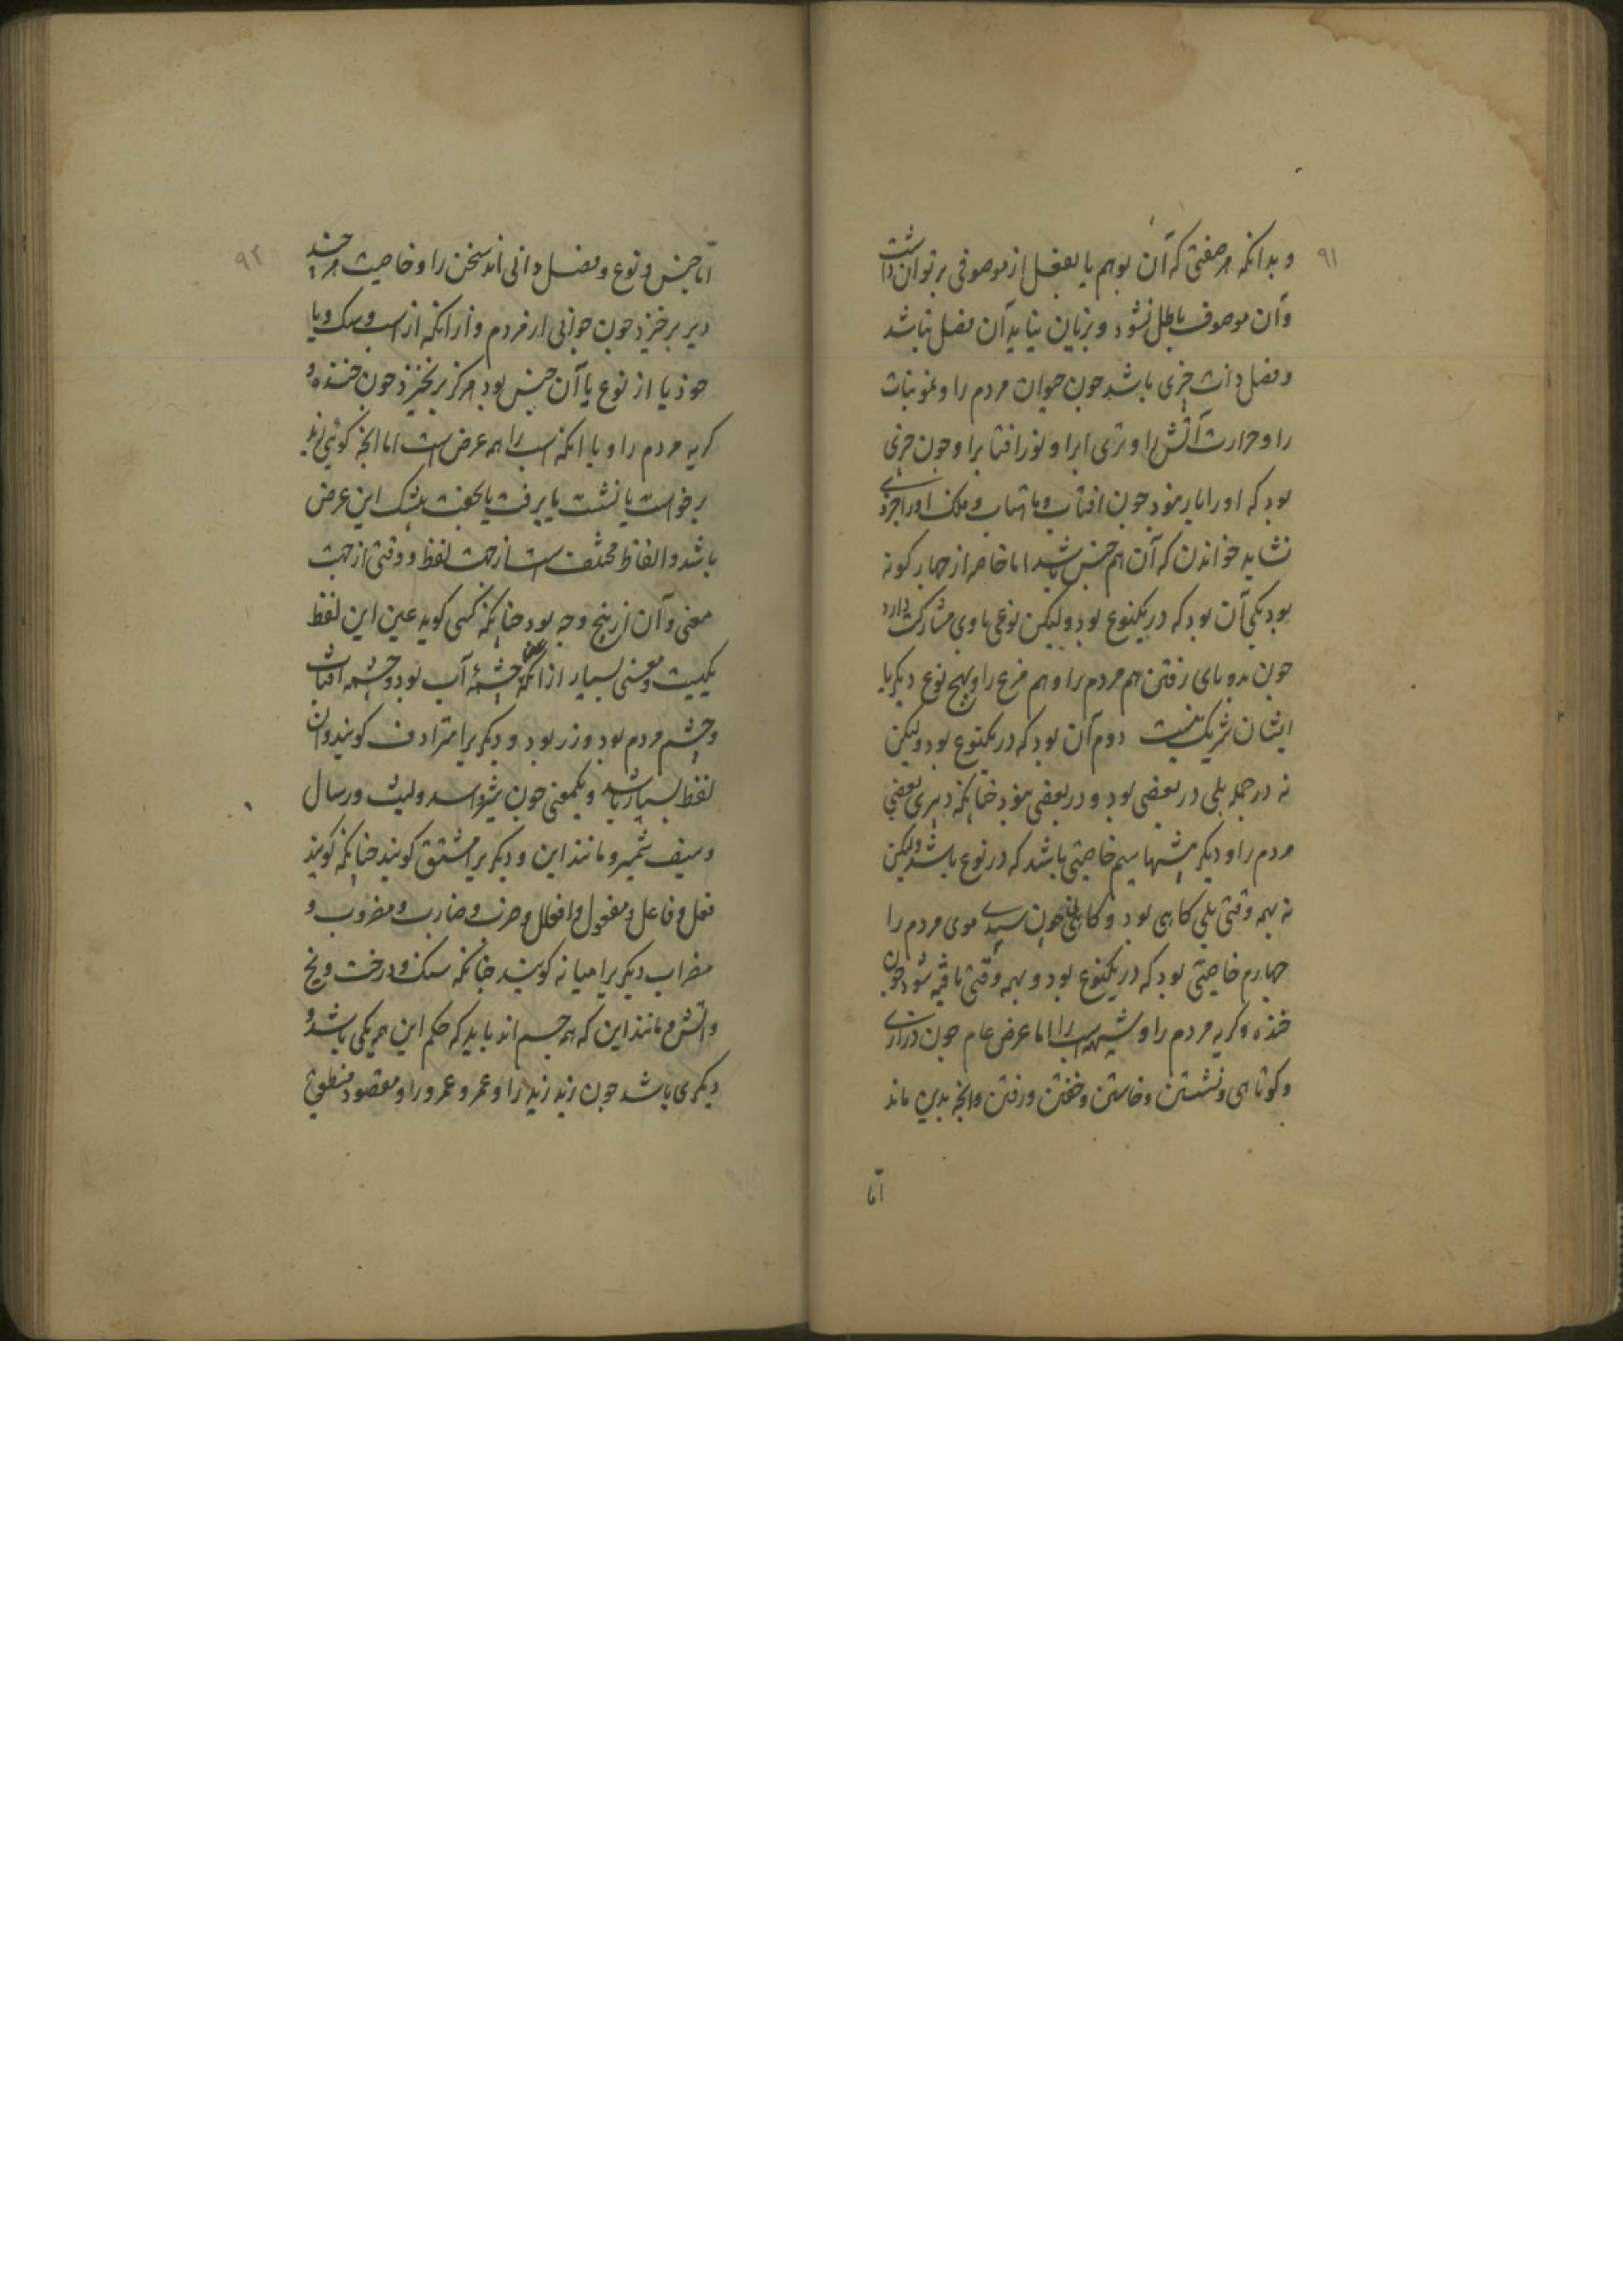 ۹۱
وبدانکه هر صفتی که آن بوهم یا بفعل از موصوفی بر توان داشت
وآن موصوف باطل نشود و بزیان نیاید آن فصل نباشد
وفصل ذات چیزی باشد جون حیوان مردم را ونمو نبات
را وحرارت آتش را وتری ابرا ونور افتابرا وجون چیزی
بود که اورا یار نبود جون افتاب وماهتاب وفلک اورا جزوی
نشاید خواندن که آن هم جنس باشد اما خاصه از جهار کونه
بود یکی آن بود که در یکنوع بود ولیکن نوعی با وی مشارکت دارد
جون بدو پای رفتن هم مردم را وهم مرغ را وهیج نوع دیکر با
ایشان شریک نیست دوم آن بود که در یکنوع بود ولیکن
نه در جمله بلی در بعضی بود ودر بعضی نبود جنانکه دبیری بعضی
مردم را ودیکر پیشها سیم خاصیتی باشد که در نوع باشد ولیکن
نه بهمه وقتی بلی کاهی بود وکاهی نی جون سپیدی موی مردم را
جهارم خاصیتی بود که در یکنوع بود وبهمه وقتی یافته شود جون
خنده وکریه مردم را وشیهه اسب را اما عرض عام جون درازی
وکوتاهی ونشستن وخاستن وخفتن ورفتن وانجه بدین ماند
امّا
۹۲
امّا جنس ونوع وفصل ذاتی اند سخن را وخاصیت هر چند
دیر برخیزد جون جوانی از مردم وازانکه از اسب وسک ویا
خود یا از نوع یا آن جنس بود هرکز برنخیزد جون خنده و
کریه مردم را ویا انکه اسب را همه عرض است اما انجه کوئی زید
برخواست یا نشست یا برفت یا بخفت بیشک این عرض
باشد والفاظ مختلف است از جهت لفظ ووقتی از جهت
معنی وآن از پنج وجه بود جنانکه کسی کوید عین این لفظ
یکیست ومعنی بسیار از انکه عین چشمهٔ آب بود وچشمه افتاب
وچشم مردم بود وزر بود ودیکر را مترادف کویند وآن
لفظ بسیار باشد وبکمعنی جون شیر واسد ولیث ورسال
وسیف شمشیر ومانند این ودیکر را مشتق کویند جنانکه کویند
فعل وفاعل ومفعول وافعال وضرب وضارب ومضروب و
مضراب دیکر را میانه کویند جنانکه سنک ودرخت ویخ
واتش ومانند این که همه جسم اند باید که حکم این هر یکی باشد و
دیکری باشد جون زید زید را وعمرو عمرو را ومقصود منطقی